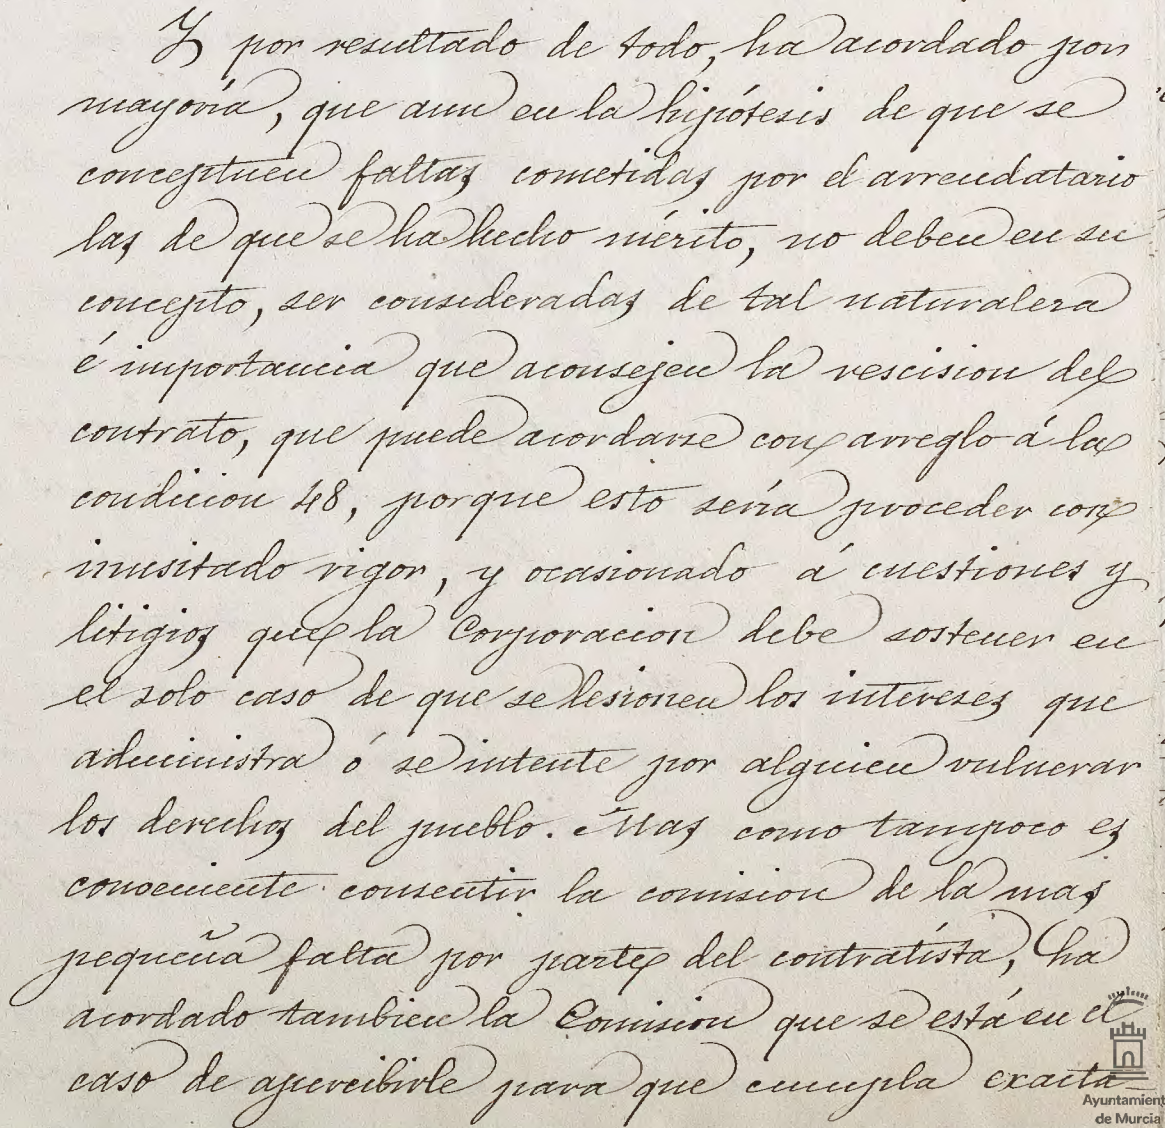 Y por resultado de todo, ha acordado por
mayoría, que aun en la hipótesis de que se
conceptuen faltas cometidas por el arrendatario
las de que se ha hecho mérito, no deben en su
concepto, ser consideradas de tal naturaleza
é importancia que aconsejen la rescision del
contrato, que puede acordarse con arreglo á la
condicion 48, porque esto sería proceder con
inusitado rigor, y ocasionado á cuestiones y
litigios que la Corporacion debe sostener en
el solo caso de que se lesionen los intereses que
administra ó se intente por alguien vulnerar
los derechos del pueblo. Mas como tampoco es
conveniente consentir la comision de la mas
pequeña falta por parte del contratista, ha
acordado tambien la Comision que se está en el
caso de apercibirle para que cumpla exacta-
Ayuntamient
de Murcia